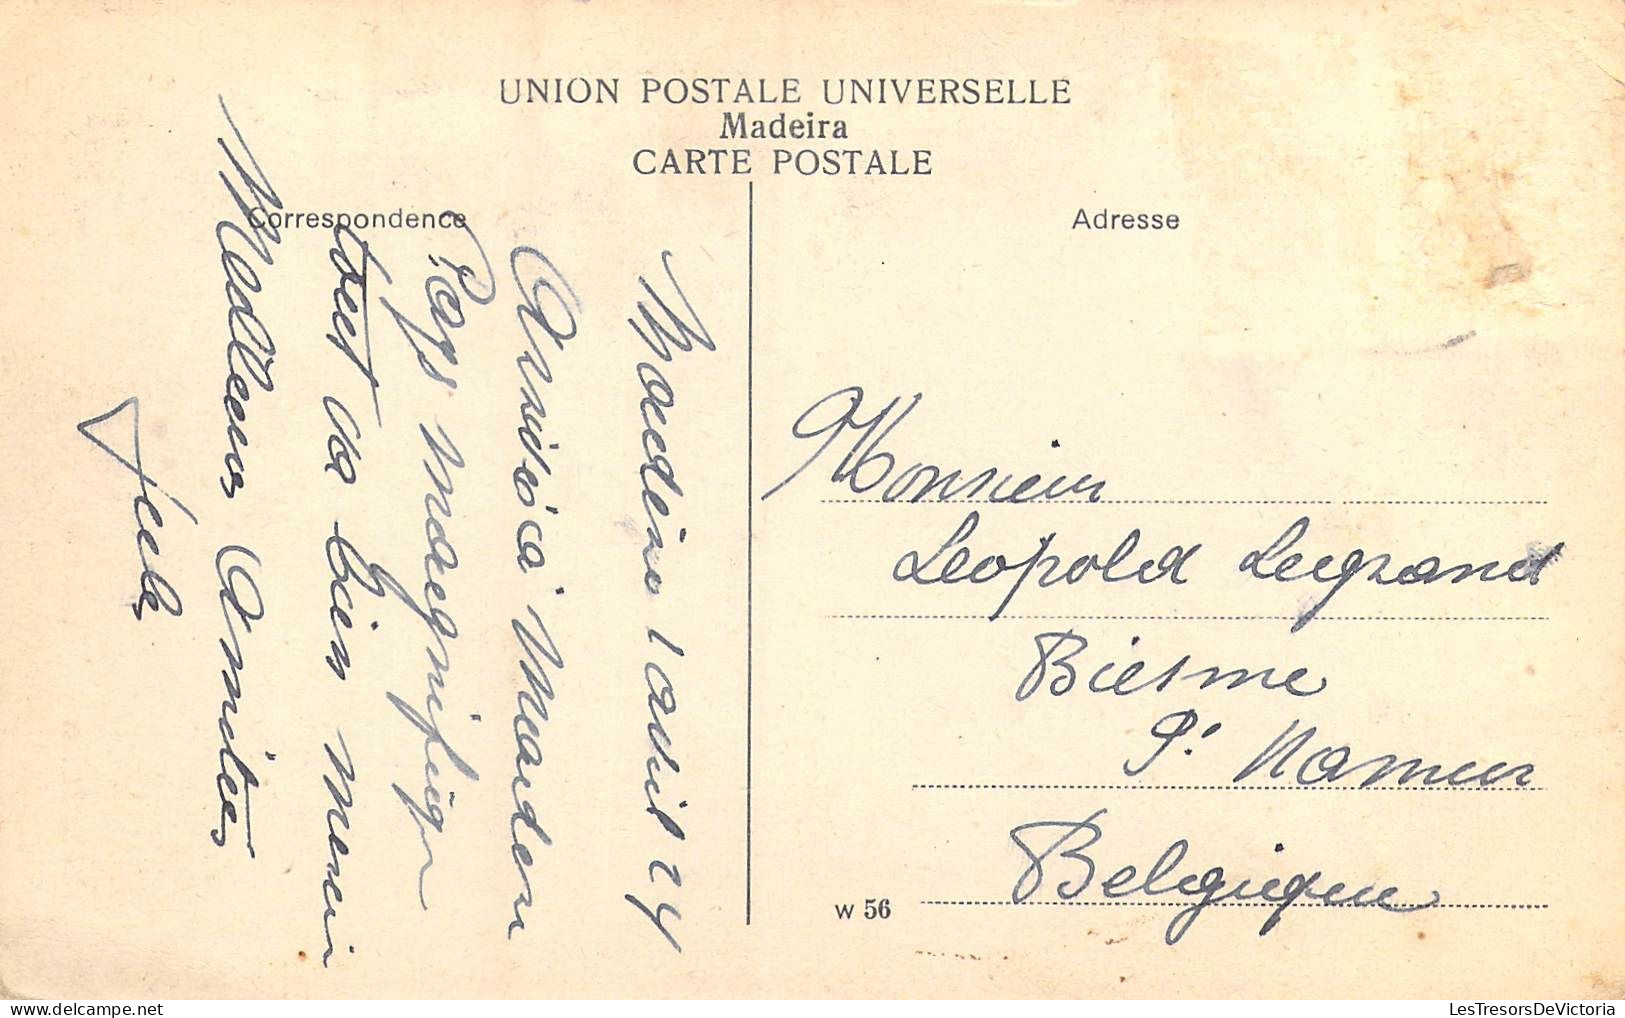 UNION POSTALE UNIVERSELLE
Madeira
CARTE POSTALE
Correspondence
Adresse
Madeire 1 avril 24
Arrivé à Maider
Pays magnifique
tout va bien merci
Meilleures Amitiés
Monsieur
Leopold Legrand
Biesme
P. Namur
Belgique
W 56
LesTresorsDeVictoria